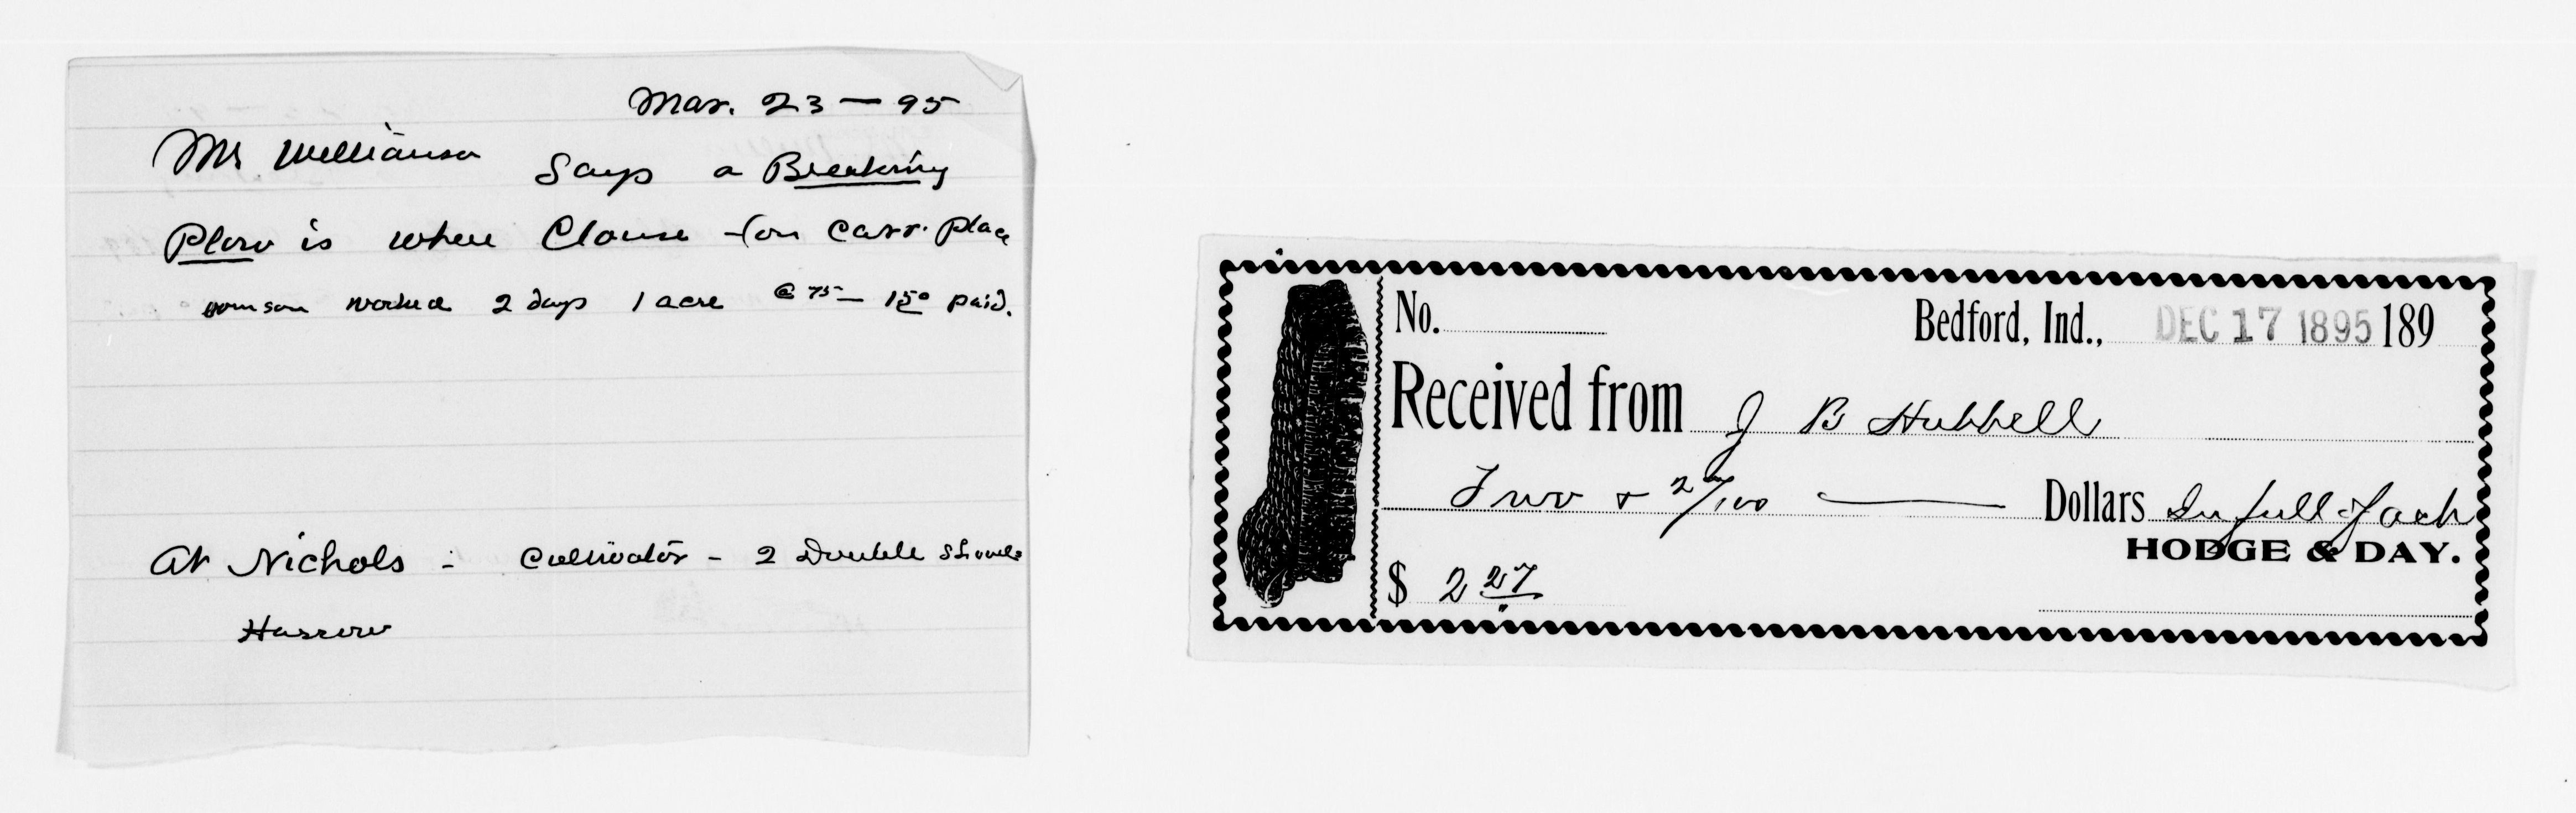 Mar. 23 — 95
Mr Williamson
Says a Breaking
Plow is where Clouse - (on Carr. Place
worked 2 days 1 acre @ 75 — 1 50 paid.
At Nichols - Cultivator - 2 Double Shovels
Harrow
No. Bedford, Ind., DEC 17 1895 189
Received from J B Hubbell
Two & 27/100 — Dollars In full of acct
HODGE & DAY.
$ 2 27